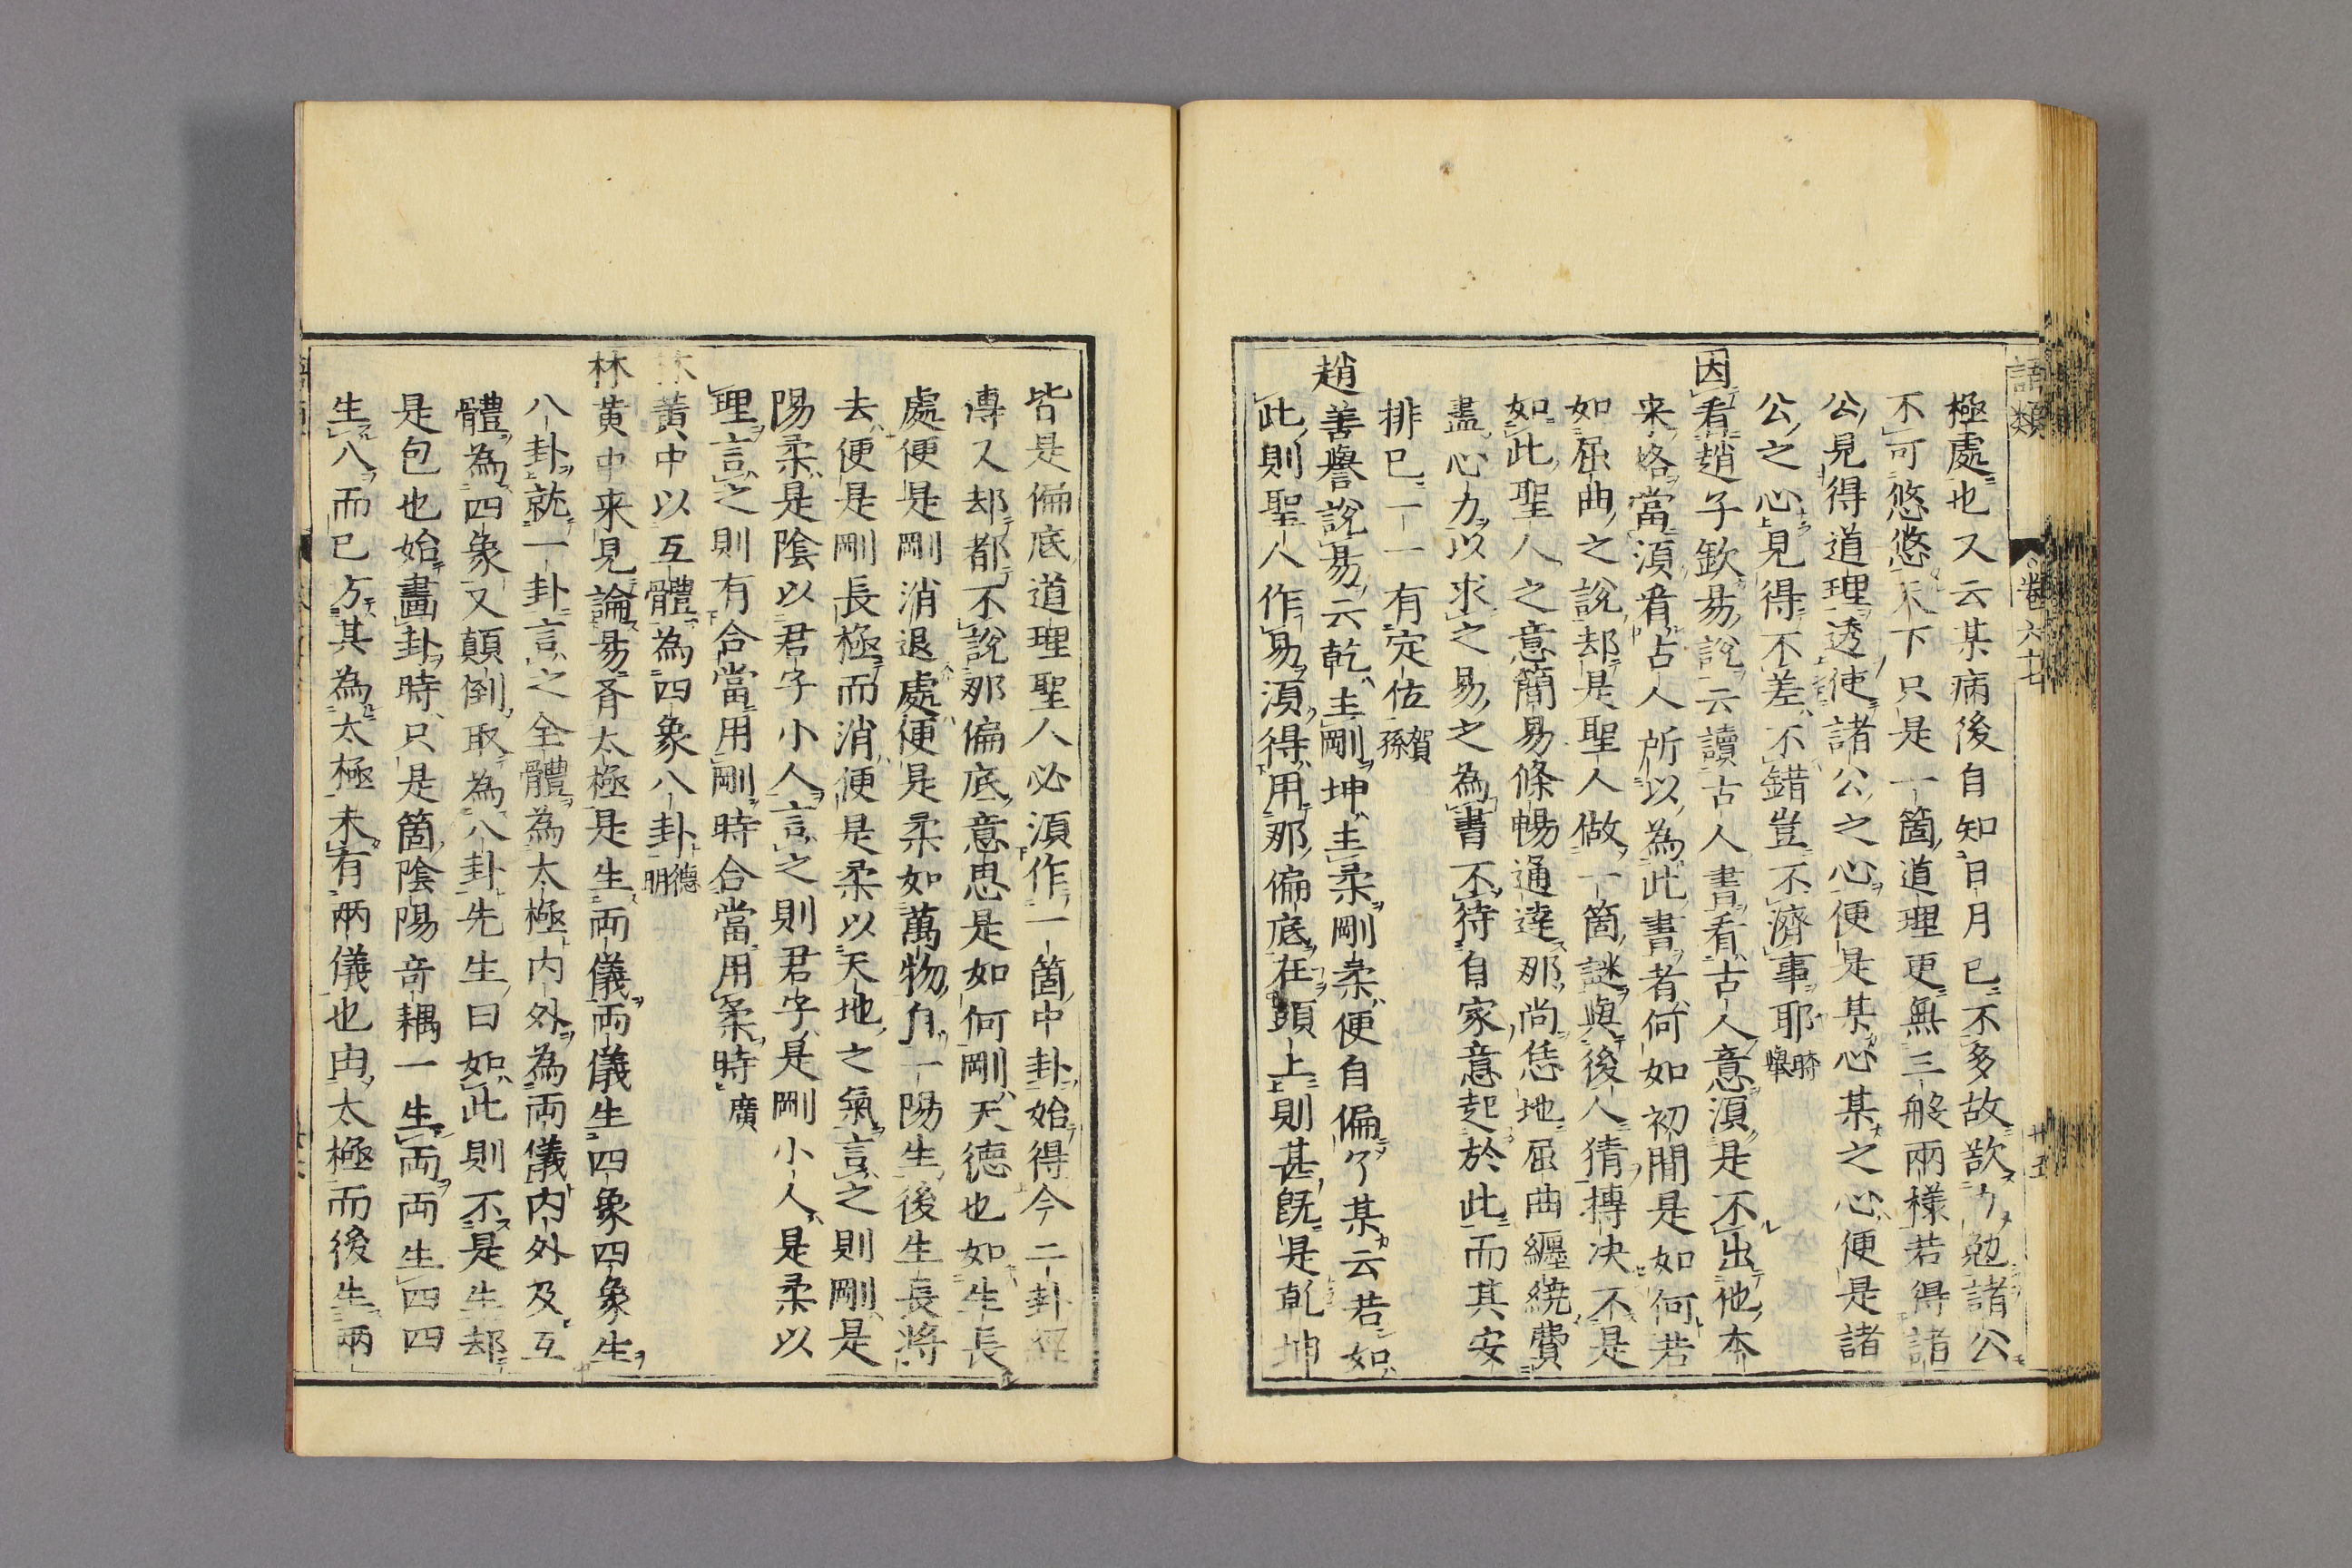 語類
卷六十七
廿五
極處也又云某病後自知日月已不多故欲力勉諸公
不可悠悠天下只是一箇道理更無三般兩樣若得諸
公見得道理透使諸公之心便是某心某之心便是諸
公之心見得不差不錯豈不濟事耶時舉
因看趙子欽易說云讀古人書看古人意須是不出他本
来格當須看占人所以為此書者何如初間是如何若
如屈曲之說却是聖人做一箇謎與後人猜搏决不是
如此聖人之意簡易條暢通達那尚恁地屈曲纏繞費
盡心力以求之易之為書不待自家意起於此而其安
排已一一有定位賀孫
趙善譽說易云乾主剛坤主柔剛柔便自偏了某云若如
此則聖人作易須得用那偏底在頭上則甚既是乾坤
皆是偏底道理聖人必須作一箇中卦始得今二卦經
傳又却都不說那偏底意思是如何剛天德也如生長
處便是剛消退處便是柔如萬物自一陽生後生長將
去便是剛長極而消便是柔以天地之氣言之則剛是
陽柔是陰以君子小人言之則君子是剛小人是柔以
理言之則有合當用剛時合當用柔時廣
林黃中以互體為四象八卦德明
林黃中来見論易有太極是生兩儀兩儀生四象四象生
八卦就一卦言之全體為太極内外為兩儀内外及互
體為四象又顛倒取為八卦先生曰如此則不是生却
是包也始畫卦時只是箇陰陽竒耦一生兩兩生四四
生八而已方其為太極未有兩儀也由太極而後生兩